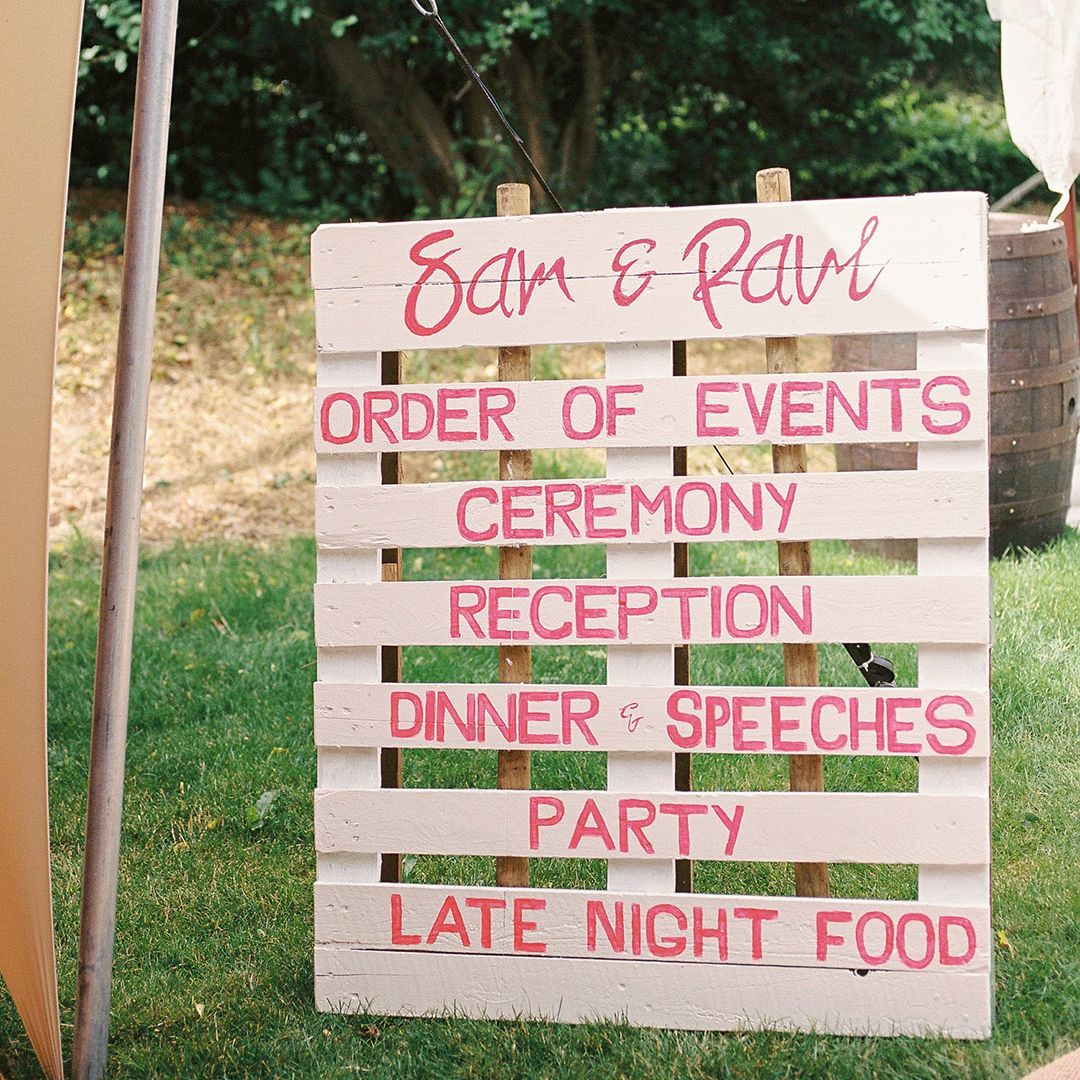 Sam & Paul
ORDER OF EVENTS
CEREMONY
RECEPTION
DINNER & SPEECHES
PARTY
LATE NIGHT FOOD